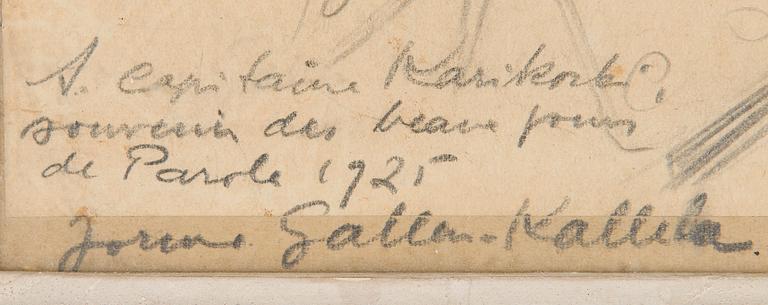 A. Capitaine Karikoski,
souvenir des beaux jours
de Parola 1925
Jorma Gallen-Kallela